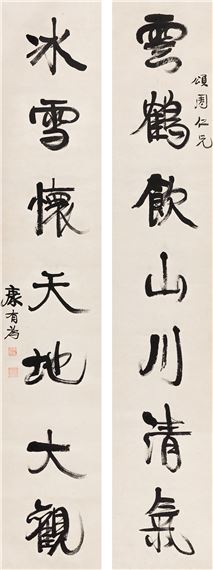 雲鶴飲山川清氣
頌圃仁兄
冰雪懷天地大觀
康有為